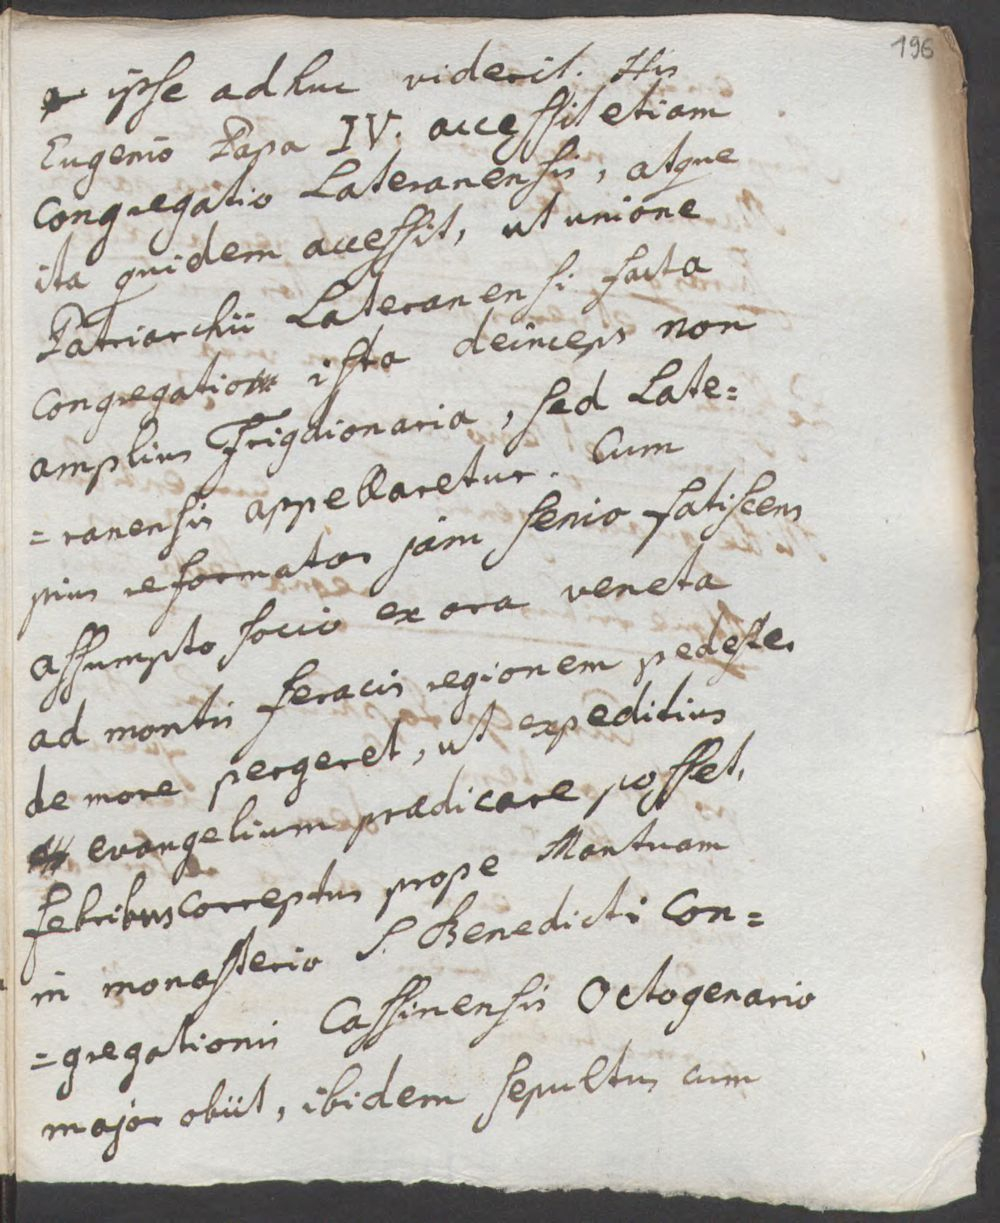 196
ipse adhuc viderit. His
Eugenio Papa IV. accessit etiam
Congregatio Lateranensis, atque
ita quidem accessit, ut unione
Patriarchii Lateranensi facta
Congregatio ista deinceps non
amplius Frigdionaria, sed Late=
=ranensis appellaretur. Cum
pius reformator jam senio fatiscens
assumpto socio ex ora veneta
ad montis feracis regionem pedester
de more pergeret, ut expeditius
evangelium prædicare posset,
febribus correptus prope Mantuam
in monasterio S. Benedicti Con=
=gregationis Cassinensis Octogenario
major obiit, ibidem sepultus cum